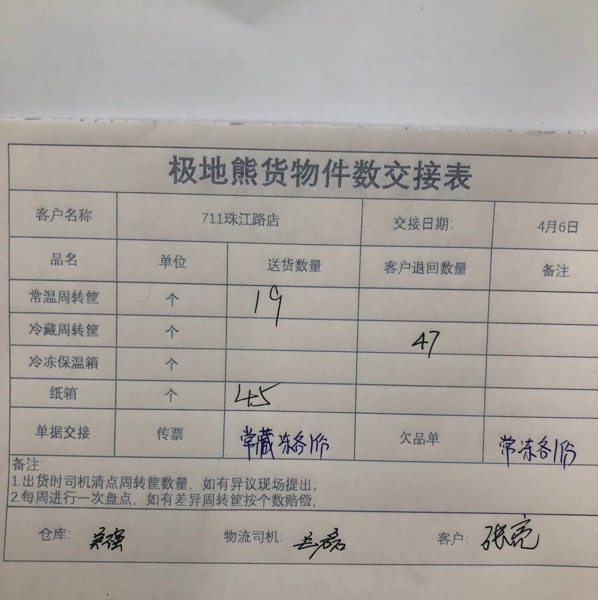 极地熊货物件数交接表
客户名称 711珠江路店 交接日期: 4月6日
品名 单位 送货数量 客户退回数量 备注
常温周转筐 个 19
冷藏周转筐 个 47
冷冻保温箱 个
纸箱 个 45
单据交接 传票 常藏冻各1份 欠品单 常冻各1份
备注:
1.出货时司机清点周转筐数量，如有异议现场提出;
2.每周进行一次盘点，如有差异周转筐按个数赔偿;
仓库: 物流司机: 客户: 张亮